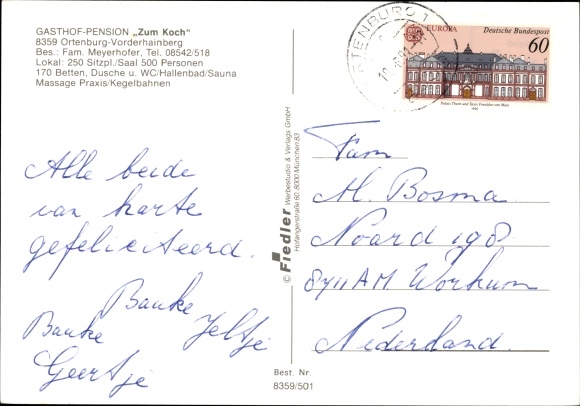 GASTHOF-PENSION „Zum Koch"
8359 Ortenburg-Vorderhainberg
Bes.: Fam. Meyerhofer, Tel. 08542/518
Lokal: 250 Sitzpl./Saal 500 Personen
170 Betten, Dusche u. WC/Hallenbad/Sauna
Massage Praxis/Kegelbahnen
Alle beide
van harte
gefeliciteerd.
Bauke
Bauke Jeltje
Geertje
© Fiedler Werbestudio & Verlags GmbH
Hofangerstraße 60, 8000 München 83
Best. Nr.
8359/501
ORTENBURG 1
EUROPA Deutsche Bundespost
60
Palais Thurn und Taxis Frankfurt am Main
1990
Fam
M. Bosma
Noard 198
8711 AM Workum
Nederland.